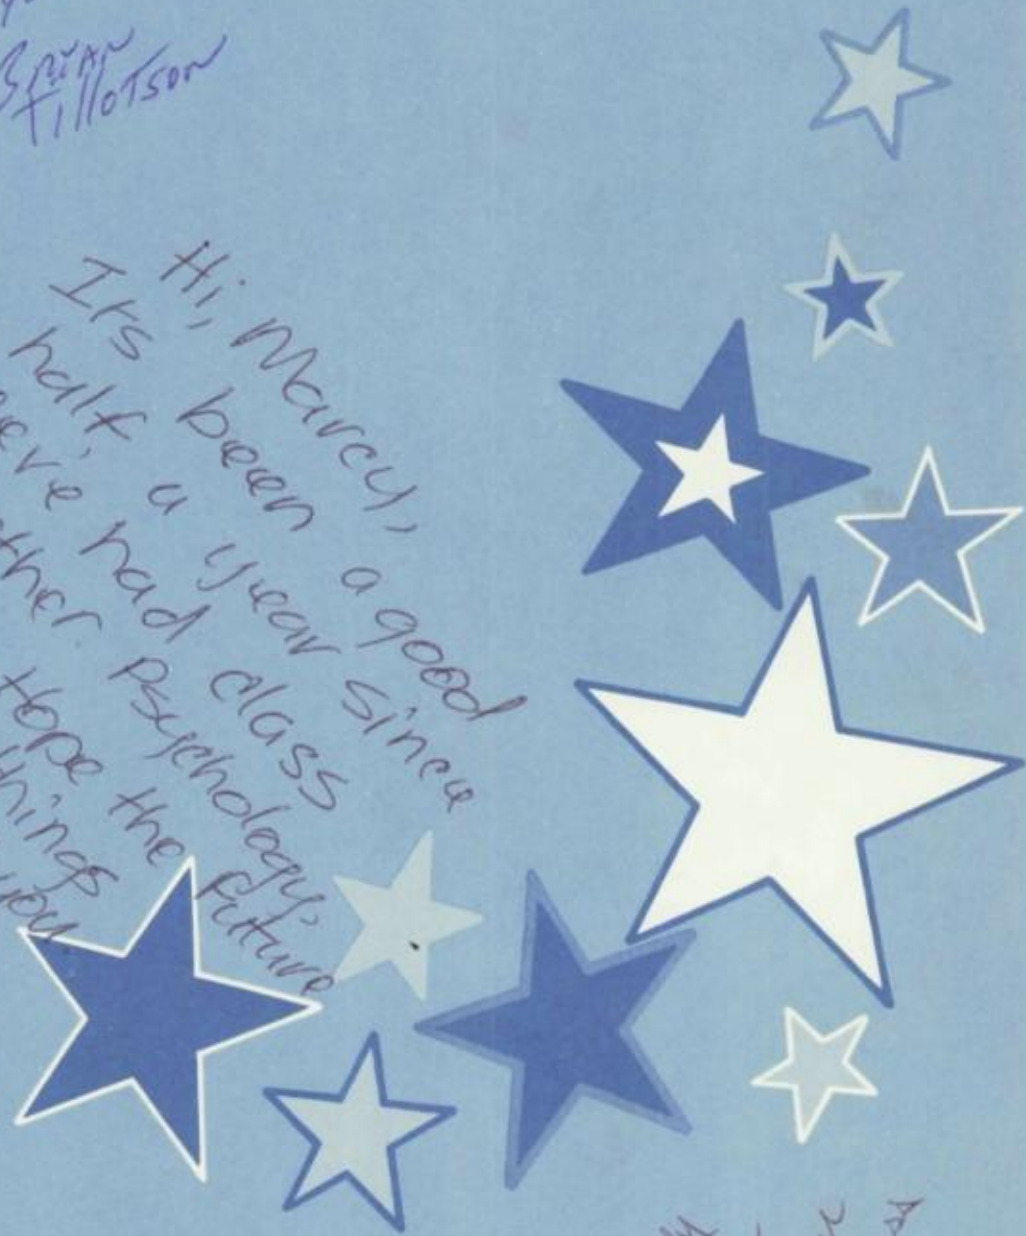 Brian
Tillotson
Hi, Marcy,
Its been a good
half a year since
had class
Psychology,
Hope the future
things
you